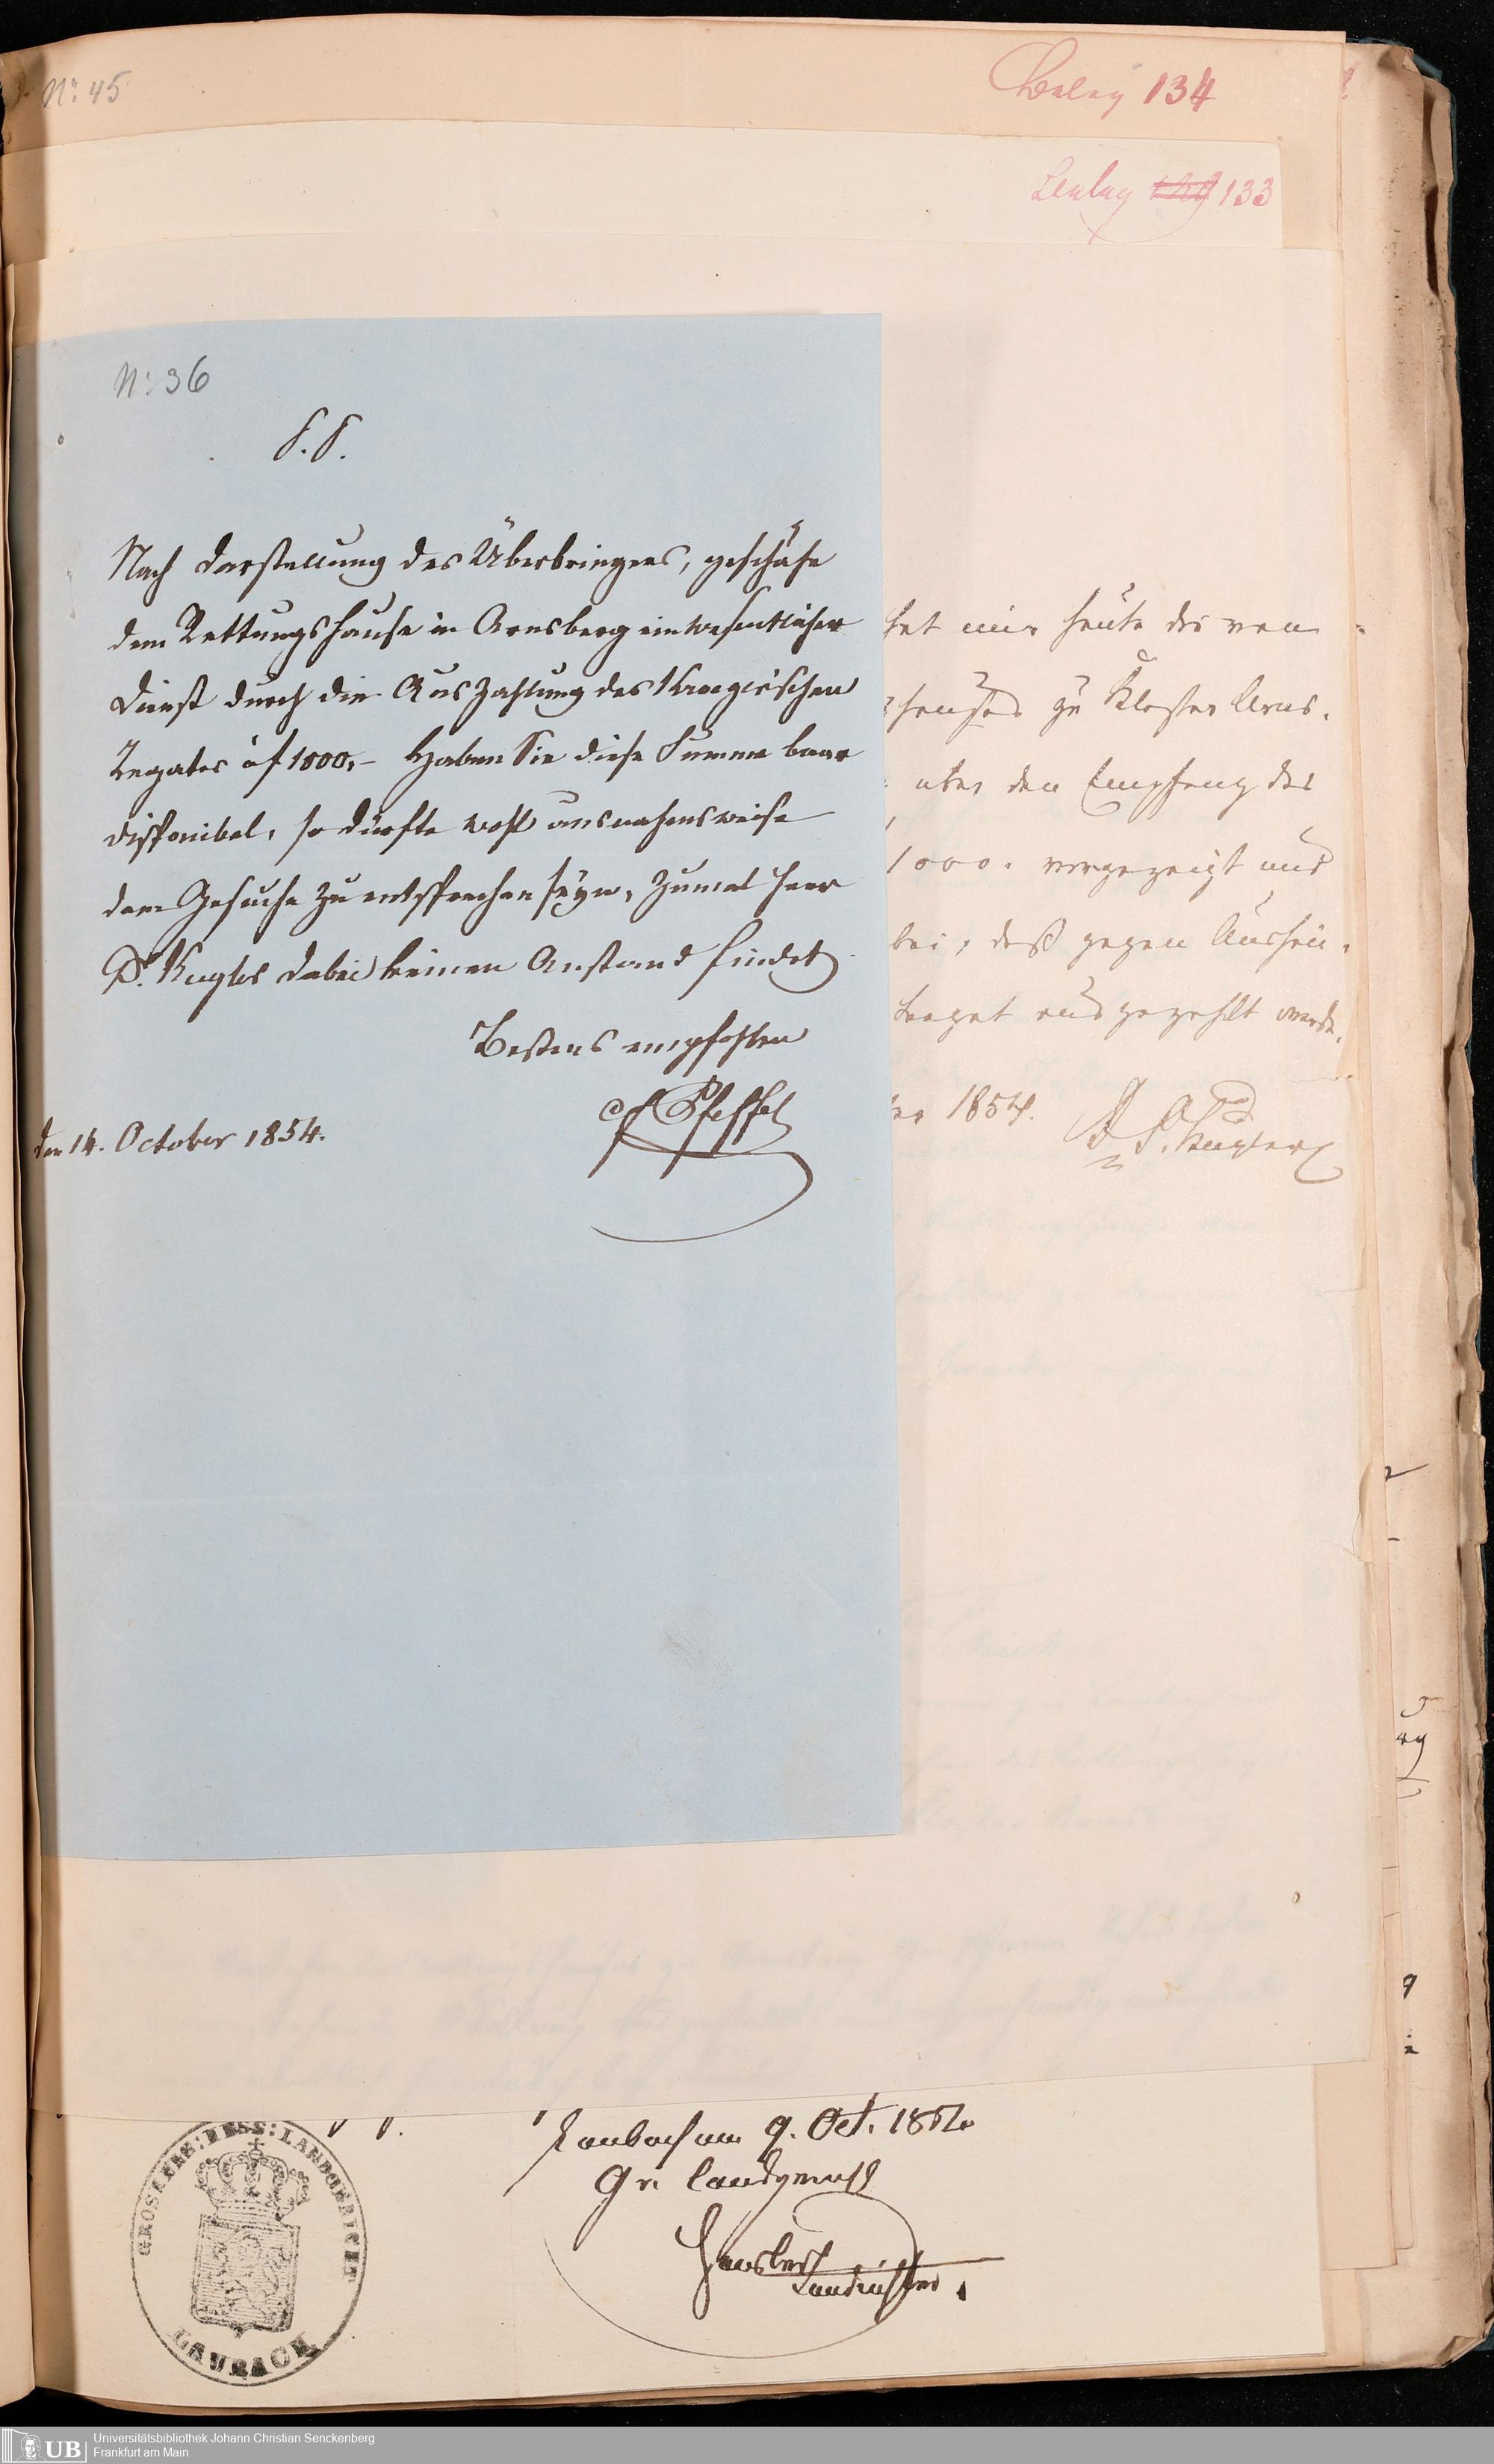 No: 45
Beleg 134
Beleg 133
No: 36
P. P.
Nach Darstellung des Überbringers, geschähe
dem Rettungshause in Arnsberg ein wesentlicher
Dienst durch die Auszahlung des Kroeger'schen
Legates à f 1000,– Haben Sie diese Summe baar
disponibel, so dürfte wohl ausnahmsweise
dem Gesuche zu entsprechen seyn, zumal Herr
Dr. Kugler dabei keinen Anstand findet
Bestens empfohlen
Pfeffel
den 14. October 1854.
hat mir heute der von
hauses zu Kloster Arns-
über den Empfang des
1000. vorgezeigt und
bei, daß gegen Aushän-
Legat ausgezahlt werde.
1854.
Dr. Kugler
Laubach am 9. Oct. 1854
Gr. Landgericht
Landrichter.
GROSHERZ: HESS: LANDGERICHT
LAUBACH
UB
Universitätsbibliothek Johann Christian Senckenberg
Frankfurt am Main